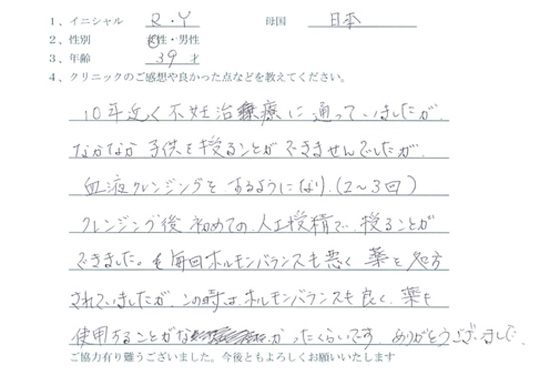 1、イニシャル R・Y 母国 日本
2、性別 女性・男性
3、年齢 39才
4、クリニックのご感想や良かった点などを教えてください。
10年近く不妊治療に通っていましたが、
なかなか子供を授ることができませんでしたが、
血液クレンジングをするようになり、(2〜3回)
クレンジング後初めての人工授精で、授ることが
できました。毎回ホルモンバランスも悪く薬を処方
されていましたが、この時は、ホルモンバランスも良く、薬も
使用することがなかったくらいです。ありがとうございました。
ご協力有り難うございました。今後ともよろしくお願いいたします